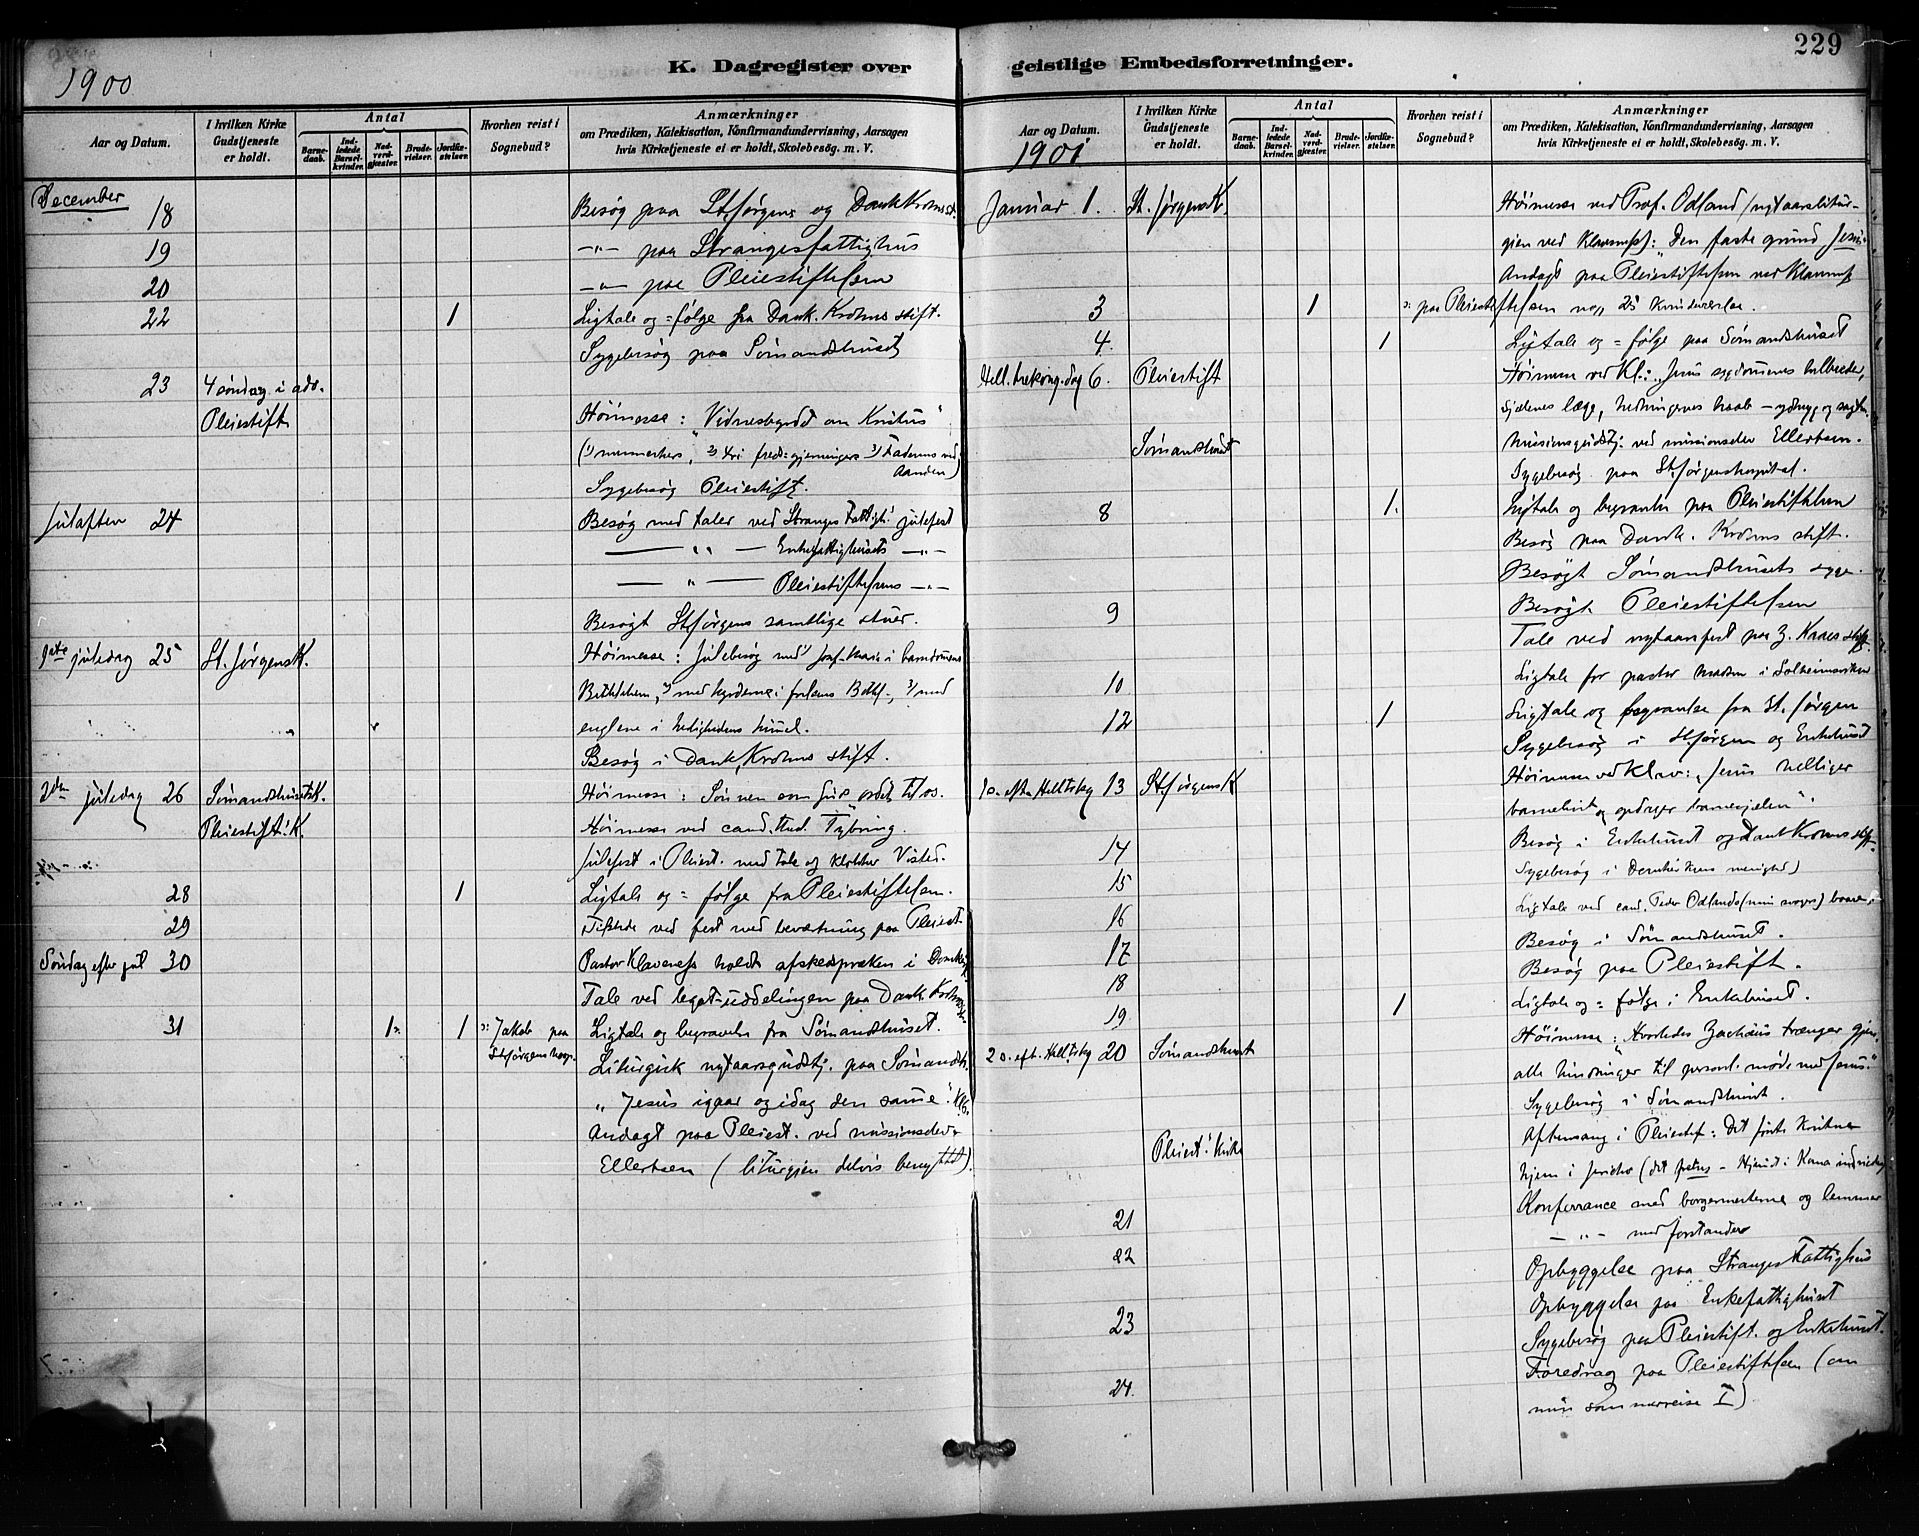 229
K. Dagregister over geistlige Embedsforretninger.
1900
Aar og Datum.
I hvilken Kirke Gudstjeneste er holdt.
Antal
Barnedaab.
Indledede Barselkvinder.
Nadverdgjester.
Brudevielser.
Jordfæstelser.
Hvorhen reist i Sognebud?
Anmærkninger
om Prædiken, Katekisation, Konfirmandundervisning, Aarsagen
hvis Kirketjeneste ei er holdt, Skolebesøg. m. V.
December
18 Besøg paa St Jørgens og Dank Krohns st.
19 -"- paa Stranges fattighus
20 -"- paa Pleiestiftelsen
22 1 Ligtale og = følge fra Dank. Krohns stift.
Sygebesøg paa Sømandshuset
23 4 søndag i adv.
Pleiestift Høimesse: "Vidnesbyrdet om Kristus"
Sygebesøg Pleiestift.
Juleaften 24 Besøg med taler ved Stranges Fattigh! julefest
— " — Enkefattighusets -"-
— " — Pleiestiftelsens -"-
Besøgt St Jørgens samtlige stuer.
1ste juledag 25 St. Jørgens K. Høimesse: Julebesøg med Josef-Maria i barndommens
Bethlehem, 2) med hyrderne i frelsens Bethl., 3) med
englene i himmel.
Besøg i Dank. Krohns stift.
2den juledag 26 Sømandshusets K. Høimesse: Sønnen som Gud til os.
Pleiestift! K. Høimesse ved cand. theol. Tybring.
Julefest i Pleiest. med tale og klokker Visted.
28 1 Ligtale og = følge fra Pleiestiftelsen.
29 Tilstede ved fest med bevertning paa Pleiest.
Søndag efter jul 30 Pastor Klaveness holdt afskedspræken i Domk
Tale ved legat-uddelingen paa Dank. Krohns st.
31 1 1 ɔ: Jakob paa
St Jørgens hosp. Ligtale og begravelse fra Sømandshuset.
Liturgisk nytaarsgudstj. paa Sømandsh.
"Jesus igaar og idag den samme".
Andagt paa Pleiest. ved missionselev
Ellertsen (liturgien delvis benyttet).
Aar og Datum.
1901
I hvilken Kirke Gudstjeneste er holdt.
Antal
Barnedaab.
Indledede Barselkvinder.
Nadverdgjester.
Brudevielser.
Jordfæstelser.
Hvorhen reist i Sognebud?
Anmærkninger
om Prædiken, Katekisation, Konfirmandundervisning, Aarsagen
hvis Kirketjeneste ei er holdt, Skolebesøg. m. V.
Januar 1. St. Jørgens K. Høimesse ved Prof. Odland (nytaarslitur-
gien ved Klaveness): "Den faste grund Jesus"
Andagt paa Pleiestiftelsen ved Klaveness
3 1 ɔ: paa Pleiestiftelsen no 25
4. 1 Ligtale og = følge paa Sømandshuset
Hell. trekong. dag 6. Pleiestift Høimesse ved Kl.: "Jesus sygdommenes helbreder,
sjælenes læge, hedningernes haab
Sømandshuset missionsgudstj. ved missionselev Ellertsen.
Sygebesøg paa St. Jørgens hospital.
8 1. Ligtale og begravelse paa Pleiestiftelsen
Besøg paa Dank. Krohns stift.
Besøgt Sømandshusets syge.
9 Besøgt Pleiestiftelsen
Tale ved nytaarsfest paa Z. Kraes stift.
10 Ligtale for pastor i Solheimsviken
12 1 Ligtale og begravelse fra St. Jørgen
Sygebesøg i St Jørgen og Enkehuset
1 s. eft. Helltrkg 13 St Jørgens K Høimesse ved Klav: "Jesus helliger
barnelivet og opdrager barnesjælen".
14 Besøg i Enkehuset og Dank Krohns stift.
15 Sygebesøg i Domkirkens menighed)
16 Ligtale ved cand. Peder Odlands
17 Besøg i Sømandshuset.
18 Besøg paa Pleiestift.
19 1 Ligtale og = følge i Enkehuset.
2 s. eft. Helltrkg 20 Sømandshuset Høimesse: "Hvorledes Zachæus trænger gjen.
alle hindringer til personl. møde med Jesus."
Sygebesøg i Sømandshuset.
Pleiest! Kirke Aftensang i Pleiestif: Det første kristne
hjem i Jericho
21 Konferrance med borgermesterne og lemmer
-"- med forstander
22 Opbyggelse paa Stranges Fattighus
Opbyggelse paa Enkefattighuset
23 Sygebesøg paa Pleiestift. og Enkehuset.
24. Foredrag paa Pleiestiftelsen (om
min sommerreise I)